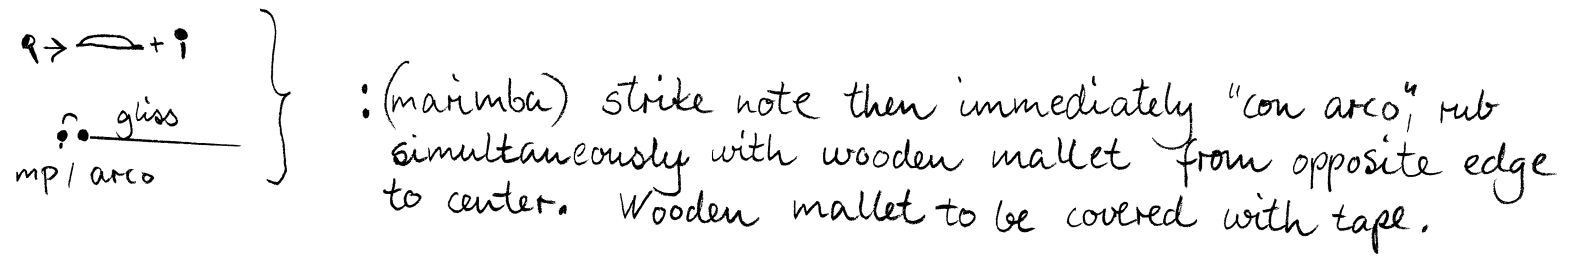 gliss
mp / arco
: (marimba) strike note then immediately "con arco", rub
simultaneously with wooden mallet from opposite edge
to center. Wooden mallet to be covered with tape.